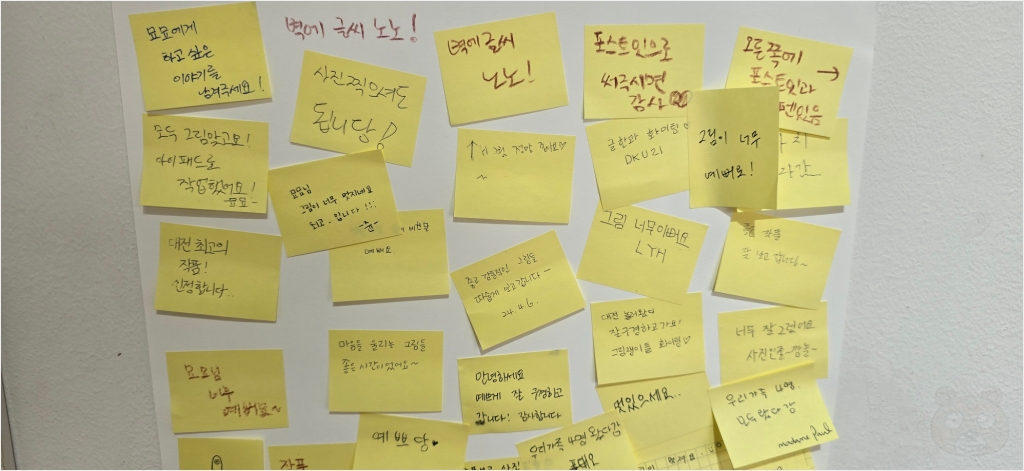 묘묘에게
하고 싶은
이야기를
남겨주세요!
벽에 글씨 노노!
사진 찍으셔도
됩니당!
벽에 글씨
노노!
포스트잇으로
써주시면
감사
오른쪽에
포스트잇과
펜있음
모두 그림맞고요!
아이패드로
작업했어요!
묘묘
묘묘님
그림이 너무 멋지네요
최고입니다!!!
예뻐요
글쓴과 화이팅
DKU21
그림이 너무
예뻐요!
대전 최고의
작품!
인정합니다..
그림 너무이뻐요
LYH
잘 보고 갑니다~
그림들
따숩게 안고갑니다
24.4.6.
대전 놀러왔다
잘구경하고가요!
그림쟁이들 화이팅♡
너무 잘 그렸어요
마음을 울리는 그림들
좋은시간이었어요~
묘묘님
너무
예뻐요~
안녕하세요
예쁘게 잘 구경하고
갑니다! 감사합니다
멋있으세요..
우리가족 4명.
모두 왔다감
예쁘당♥
우리가족 4명 왔다감
작품